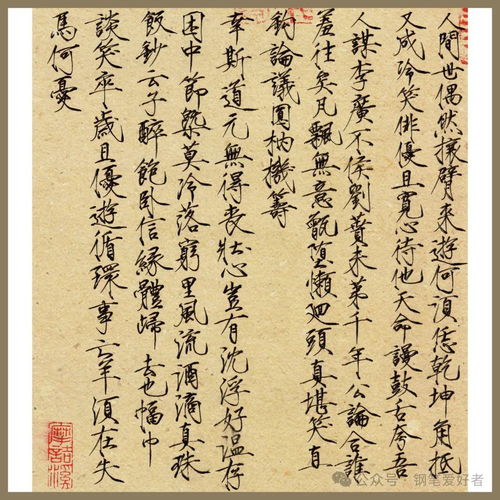 人間世偶然攘臂來遊何須恁乾坤角抵
又成冷笑俳優且寬心待他天命謾鼓舌誇吾
人謀李廣不侯劉蕡未第千年公論合誰
羞往矣凡飄無意甑墮懶迴頭真堪笑直
鈎論議圓枘機籌
幸斯道元無得喪壯心豈有沈浮好溫存
困中節槩莫冷落窮里風流酒滴真珠
飯鈔云子醉飽臥信緣體歸去也幅巾
談笑卒歲且優遊循環事亡羊須在失
馬何憂
公众号 · 钢笔爱好者